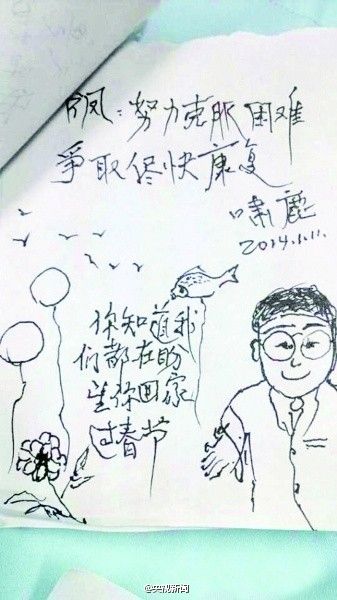 凤：努力克服困难
爭取侭快康复
2014.1.11.
你知道我
们都在盼
望你回家
过春节
@央视新闻